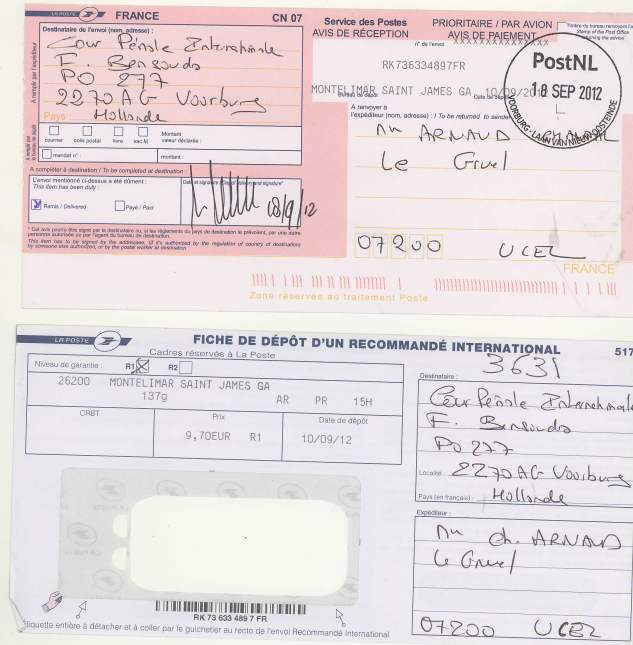 LA POSTE FRANCE CN 07
Destinataire de l'envoi (nom, adresse) :
Cour Pénale Internationale
F. Bensouda
PO 277
2270 AG Voorburg
Pays : Hollande
A remplir par l'expéditeur
courrier colis postal livre sac M
Montant
valeur déclarée :
mandat n° : montant :
A compléter à destination / To be completed at destination :
L'envoi mentionné ci-dessus a été dûment :
This item has been duly :
Remis / Delivered Payé / Paid
18/9/12
* Cet avis pourra être signé par le destinataire ou, si les règlements du pays de destination le prévoient, par une autre
personne autorisée ou par l'agent du bureau de destination.
This item has to be signed by the addressee, (if it's authorized by the regulation of country of destination)
by someone else authorized, or by the postal worker at destination
Service des Postes PRIORITAIRE / PAR AVION
AVIS DE RÉCEPTION AVIS DE PAIEMENT
n° de l'envoi XXXXXXXXXXXXXXXX
RK736334897FR
Bureau de dépôt Date de dépôt
MONTELIMAR SAINT JAMES GA 10/09/2012
A renvoyer à
l'expéditeur (nom, adresse) : / To be returned to sender
ARNAUD
07200 UCEL
FRANCE
PostNL
18 SEP 2012
VOORBURG-LAAN VAN NIEUW OOSTEINDE
Zone réservée au traitement Poste
LA POSTE FICHE DE DÉPÔT D'UN RECOMMANDÉ INTERNATIONAL 517
Cadres réservés à La Poste
3631
Niveau de garantie : R1 R2
26200 MONTELIMAR SAINT JAMES GA
137g AR PR 15H
CRBT Prix Date de dépôt
9,70EUR R1 10/09/12
Destinataire :
Cour Pénale Internationale
F. Bensouda
PO 277
Localité : 2270 AG Voorburg
Pays (en français) : Hollande
Expéditeur :
Ch. ARNAUD
07200 UCEL
RK 73 633 489 7 FR
Etiquette entière à détacher et à coller par le guichetier au recto de l'envoi Recommandé International